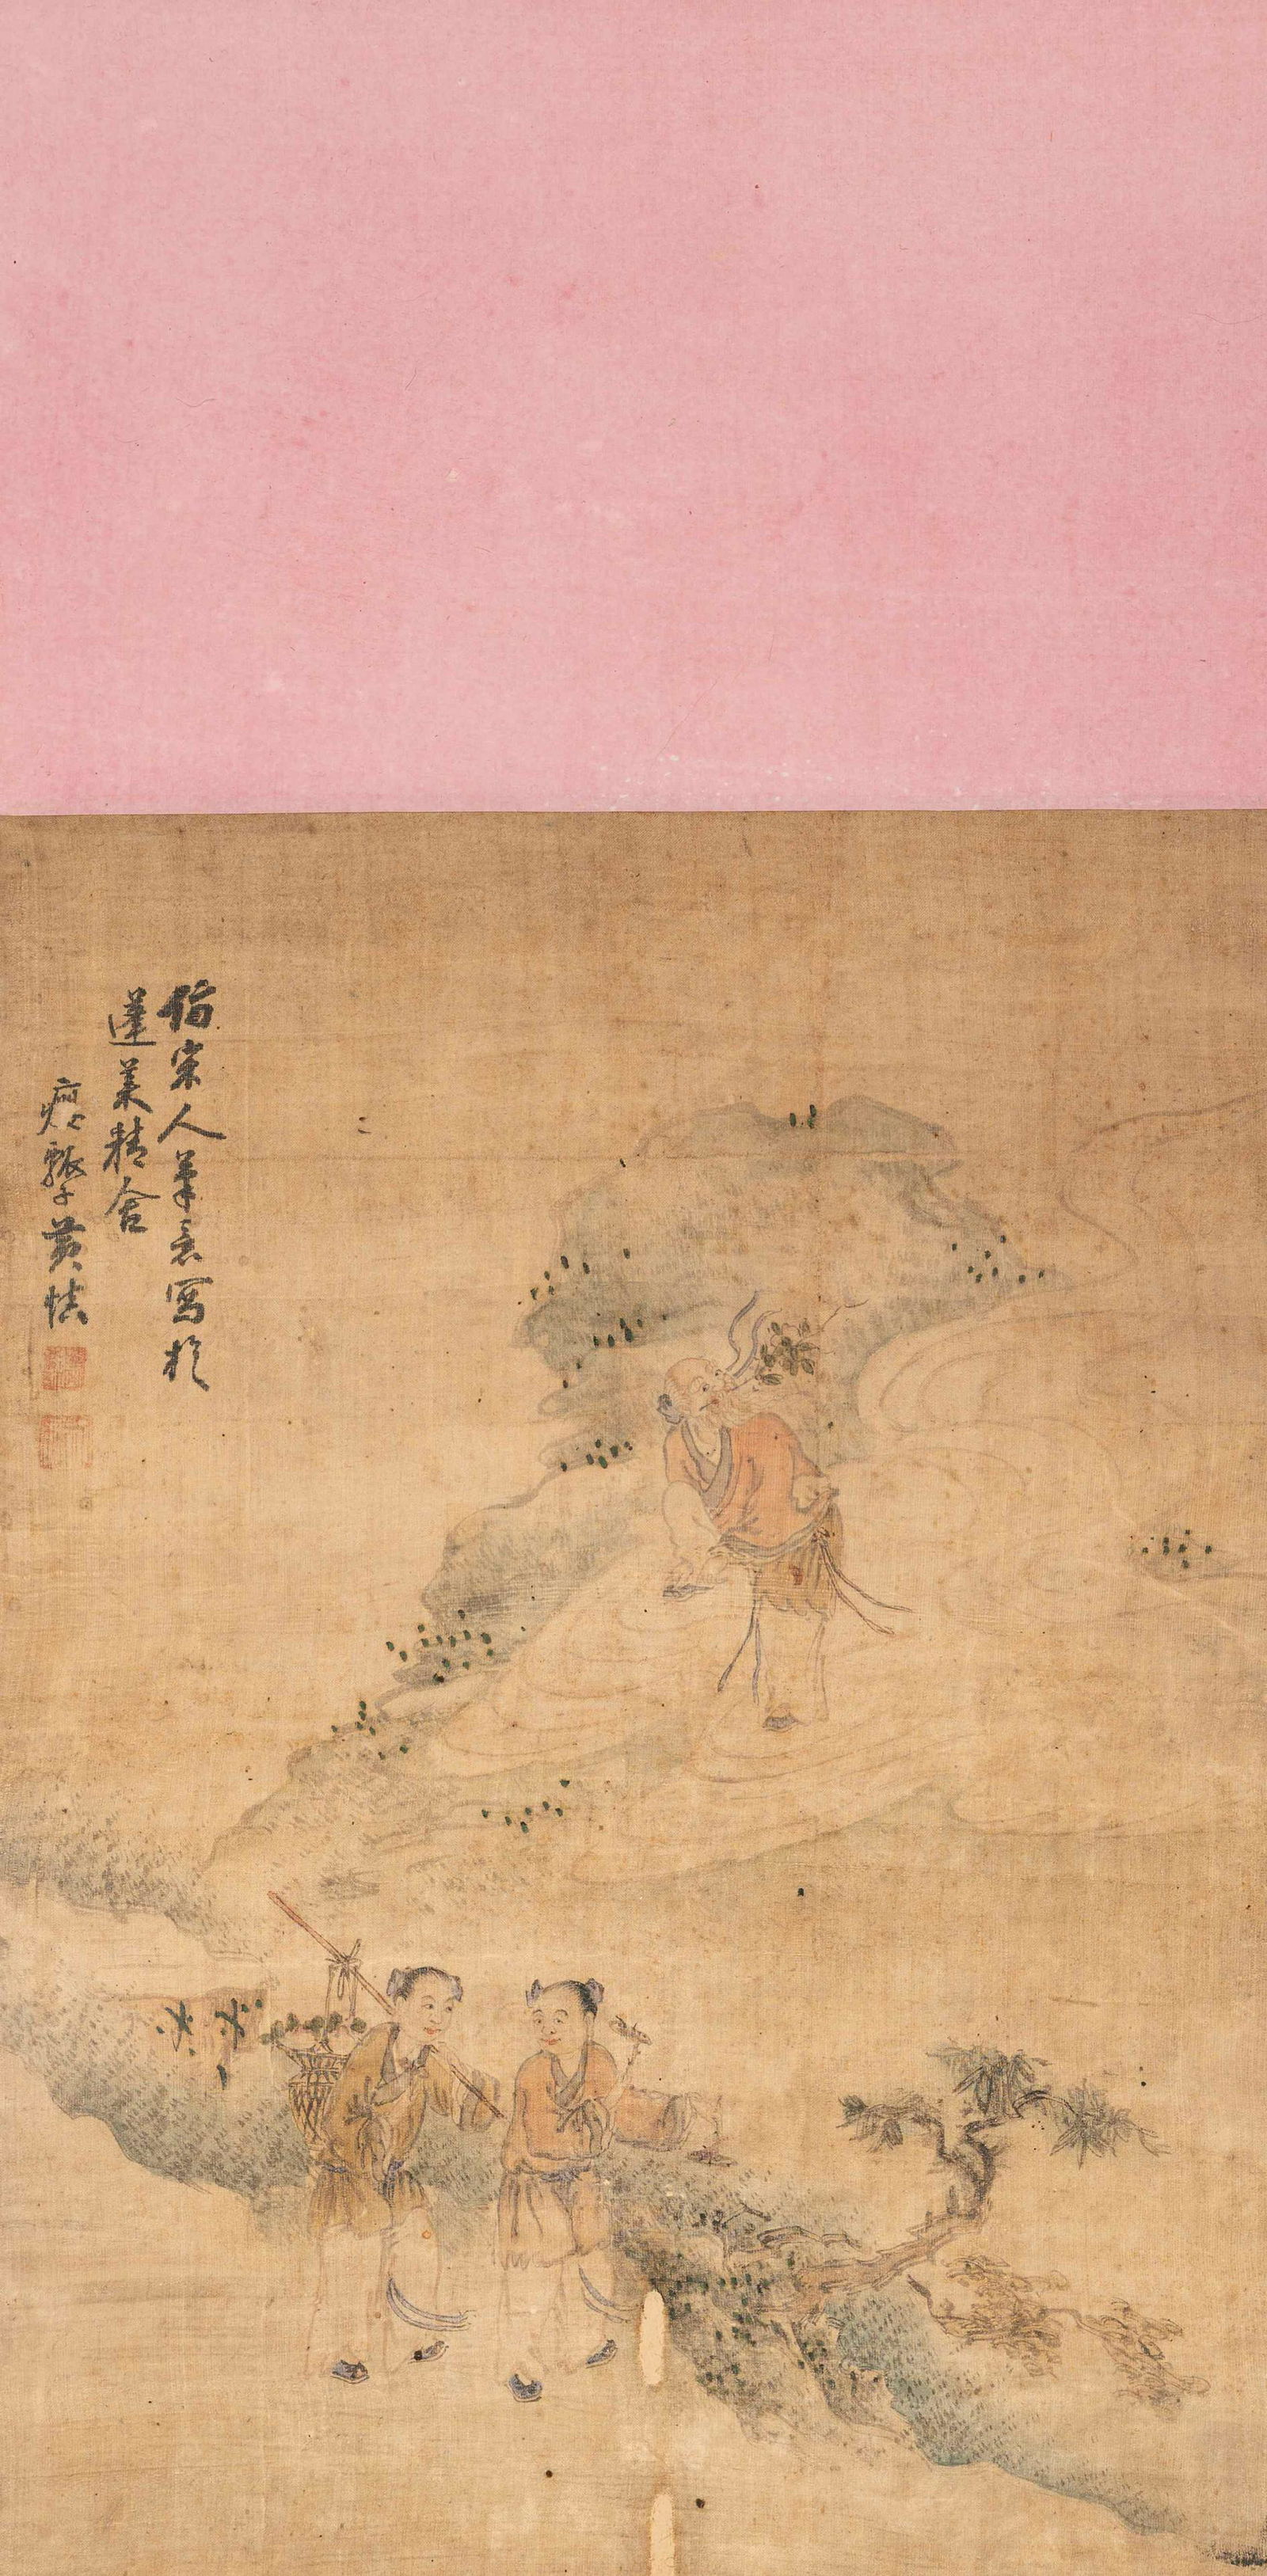 仿宋人筆意寫於
蓬萊精舍
癭瓢子黃慎